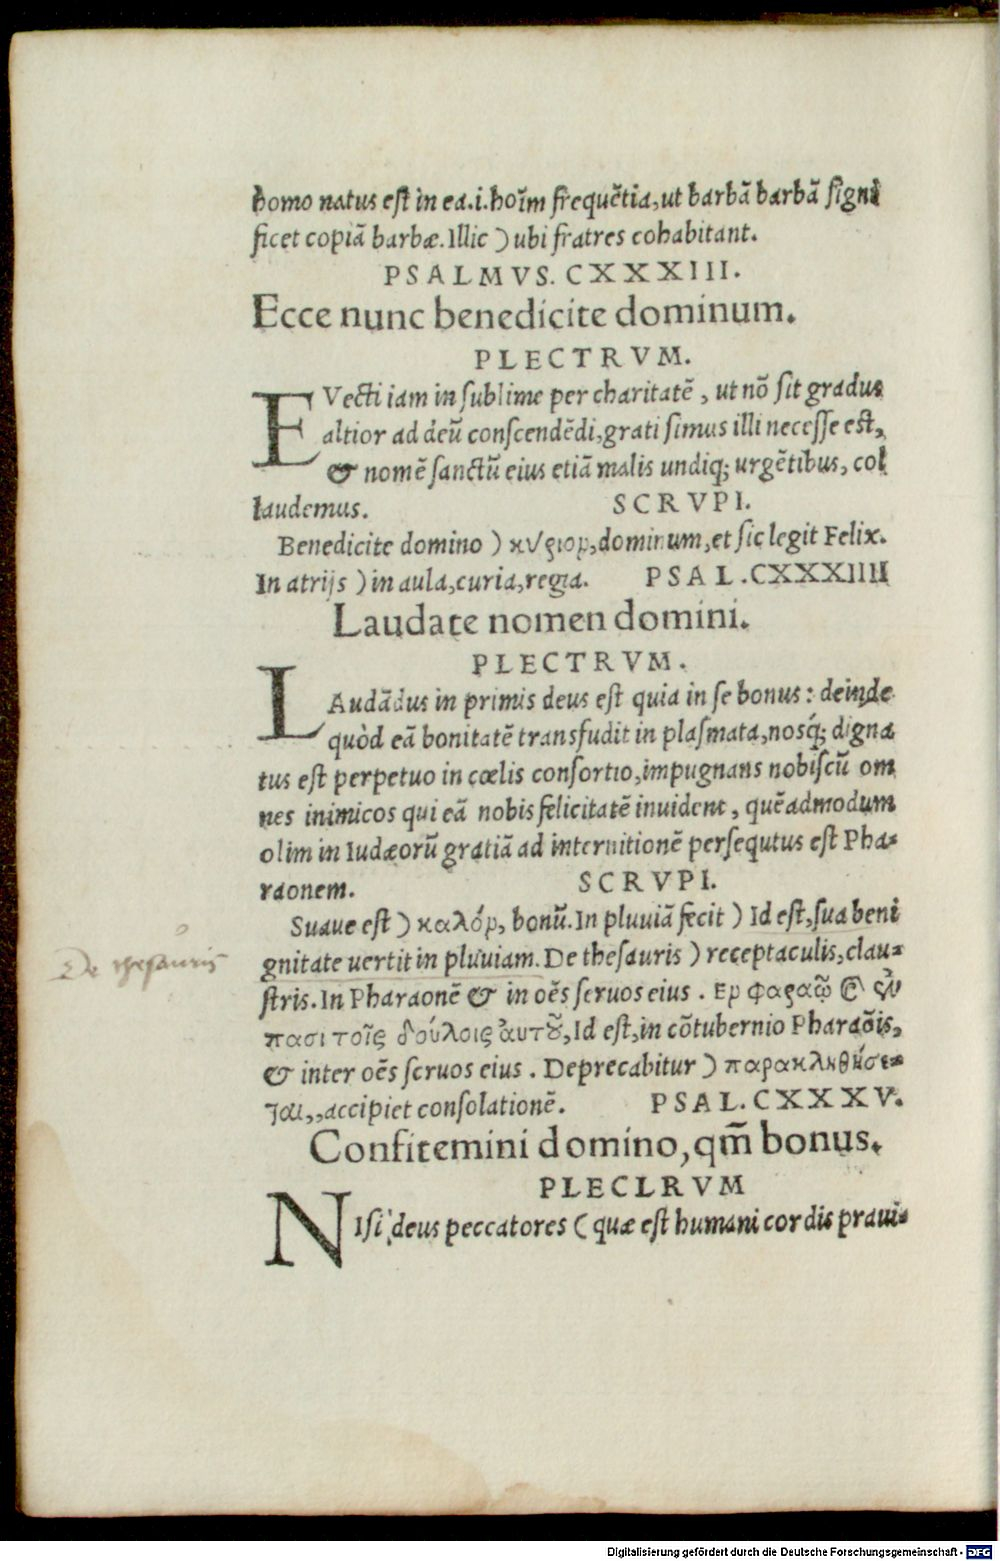 homo natus est in ea.i.hoīm frequētia,ut barbā barbā signi
ficet copiā barbæ. Illic ) ubi fratres cohabitant.
PSALMVS. CXXXIII.
Ecce nunc benedicite dominum.
PLECTRVM.
EVecti iam in sublime per charitatē , ut nō sit gradus
altior ad deū conscendēdi,grati simus illi necesse est,
& nomē sanctū eius etiā malis undiq; urgētibus, col
laudemus. SCRVPI.
Benedicite domino ) κύριον,dominum,et sic legit Felix.
In atrijs ) in aula,curia,regia. PSAL.CXXXIIII
Laudate nomen domini.
PLECTRVM.
LAudādus in primis deus est quia in se bonus : deinde
quòd eā bonitatē transfudit in plasmata,nosq́; digna
tus est perpetuo in cœlis consortio,impugnans nobiscū om
nes inimicos qui eā nobis felicitatē inuident , quēadmodum
olim in Iudæorū gratiā ad internitionē persequtus est Pha-
raonem. SCRVPI.
Suaue est ) καλόν, bonū. In pluuiā fecit ) Id est,sua beni
gnitate uertit in pluuiam. De thesauris ) receptaculis,clau-
De thesauris
stris. In Pharaonē & in oēs seruos eius . Εν φαραῷ καὶ ἐν
πασι τοῖς δούλοις ἀυτοῦ, Id est,in cōtubernio Pharaōis,
& inter oēs seruos eius . Deprecabitur ) παρακληθήσε-
ται,,accipiet consolationē. PSAL. CXXXV.
Confitemini domino,qm̄ bonus.
PLECLRVM
NIsi deus peccatores ( quæ est humani cordis praui-
Digitalisierung gefördert durch die Deutsche Forschungsgemeinschaft - DFG